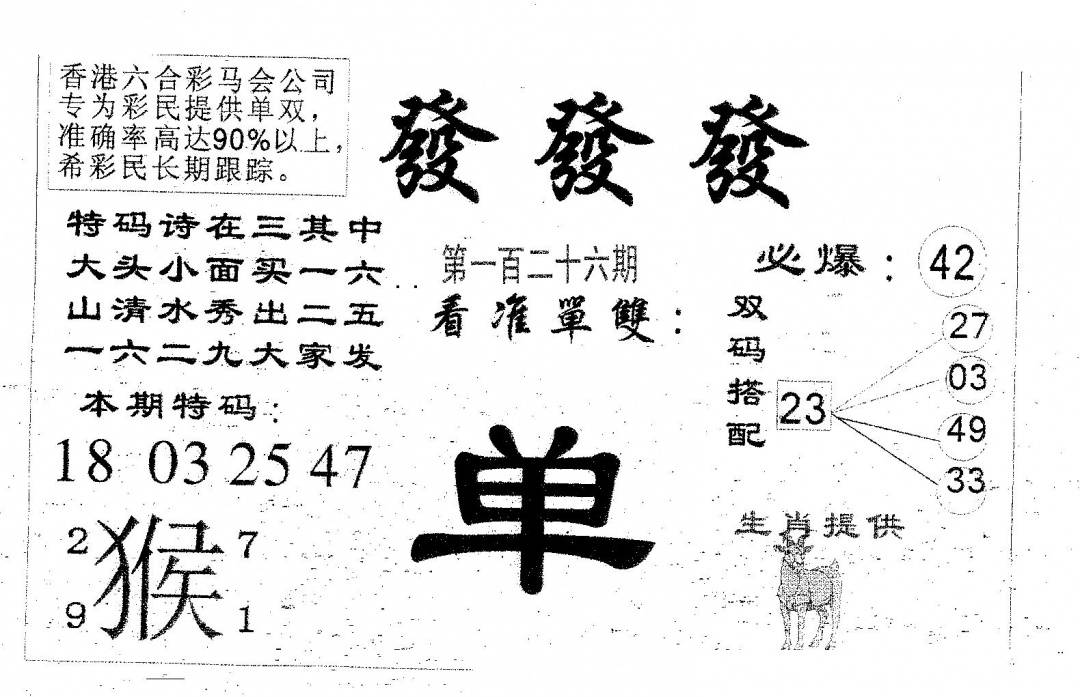 香港六合彩马会公司
专为彩民提供单双，
准确率高达90%以上，
希彩民长期跟踪。
發 發 發
特码诗在三其中
大头小面买一六
山清水秀出二五
一六二九大家发
本期特码：
18 03 25 47
2 7
猴
9 1
第一百二十六期
看准單雙：
单
必爆：42
双码搭配
23
27
03
49
33
生肖提供